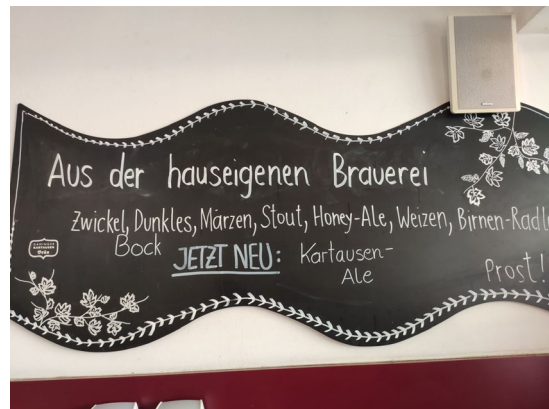 Aus der hauseigenen Brauerei
Zwickel, Dunkles, Märzen, Stout, Honey-Ale, Weizen, Birnen-Radl
Bock JETZT NEU: Kartausen-
Ale
Prost!